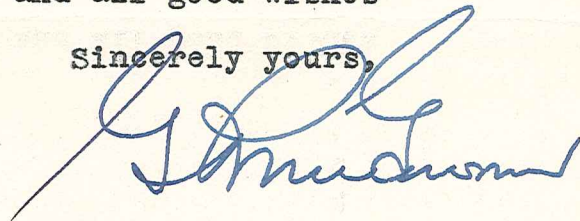 and all good wishes
Sincerely yours,